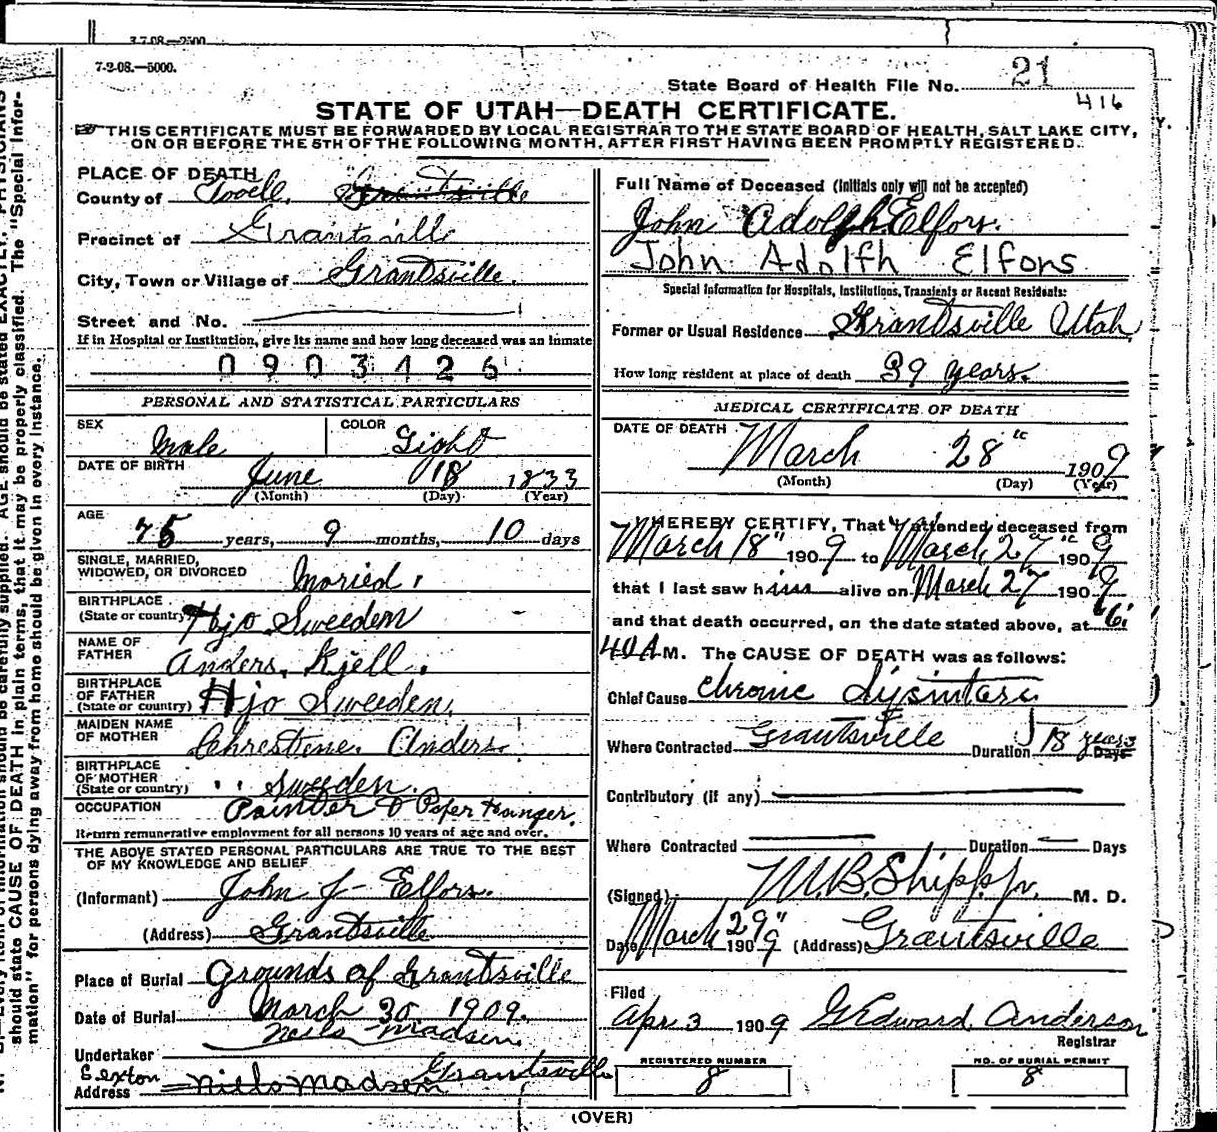 3-7-08.—2500
7-2-08.—5000.
State Board of Health File No. 21
416
STATE OF UTAH—DEATH CERTIFICATE.
THIS CERTIFICATE MUST BE FORWARDED BY LOCAL REGISTRAR TO THE STATE BOARD OF HEALTH, SALT LAKE CITY,
ON OR BEFORE THE 5TH OF THE FOLLOWING MONTH, AFTER FIRST HAVING BEEN PROMPTLY REGISTERED.
PLACE OF DEATH
County of Tooell. Grantsville
Precinct of Grantsville
City, Town or Village of Grantsville.
Street and No.
If in Hospital or Institution, give its name and how long deceased was an inmate
0903426
PERSONAL AND STATISTICAL PARTICULARS
SEX Male COLOR Light
DATE OF BIRTH June 18 1833
(Month) (Day) (Year)
AGE
75 years, 9 months, 10 days
SINGLE, MARRIED,
WIDOWED, OR DIVORCED Maried.
BIRTHPLACE
(State or country) Hjo Sweeden
NAME OF
FATHER Anders. Kjell.
BIRTHPLACE
OF FATHER
(State or country) Hjo Sweeden.
MAIDEN NAME
OF MOTHER Chrestene. Anders.
BIRTHPLACE
OF MOTHER
(State or country) " Sweeden.
OCCUPATION Painter & Paper Hanger.
Return remunerative employment for all persons 10 years of age and over.
THE ABOVE STATED PERSONAL PARTICULARS ARE TRUE TO THE BEST
OF MY KNOWLEDGE AND BELIEF
(Informant) John J Elfors.
(Address) Grantsville
Place of Burial Grounds of Grantsville
Date of Burial March 30 1909.
Niels Madsen.
Undertaker
Sexton Grantsville
Address Niels Madsen
Full Name of Deceased (Initials only will not be accepted)
John Adolph Elfors.
John Adolfh Elfons
Special Information for Hospitals, Institutions, Transients or Recent Residents:
Former or Usual Residence Grantsville Utah
How long resident at place of death 39 years.
MEDICAL CERTIFICATE OF DEATH
DATE OF DEATH
March 28" 1909
(Month) (Day) (Year)
I HEREBY CERTIFY, That I attended deceased from
March 18" 1909 to March 27" 1909
that I last saw him alive on March 27 1909
and that death occurred, on the date stated above, at 6:
40 A M. The CAUSE OF DEATH was as follows:
Chief Cause chronic dysintara
Where Contracted Grantsville Duration 18 years Days
Contributory (if any)
Where Contracted Duration Days
(Signed) M.B. Shipp Jr. M. D.
Date March 29" 1909 (Address) Grantsville
Filed
Apr 3 1909 G Edward. Anderson
Registrar
REGISTERED NUMBER
8
NO. OF BURIAL PERMIT
8
(OVER)
should state CAUSE OF DEATH in plain terms, that it may be properly classified. The "Special Infor-
mation" for persons dying away from home should be given in every instance.